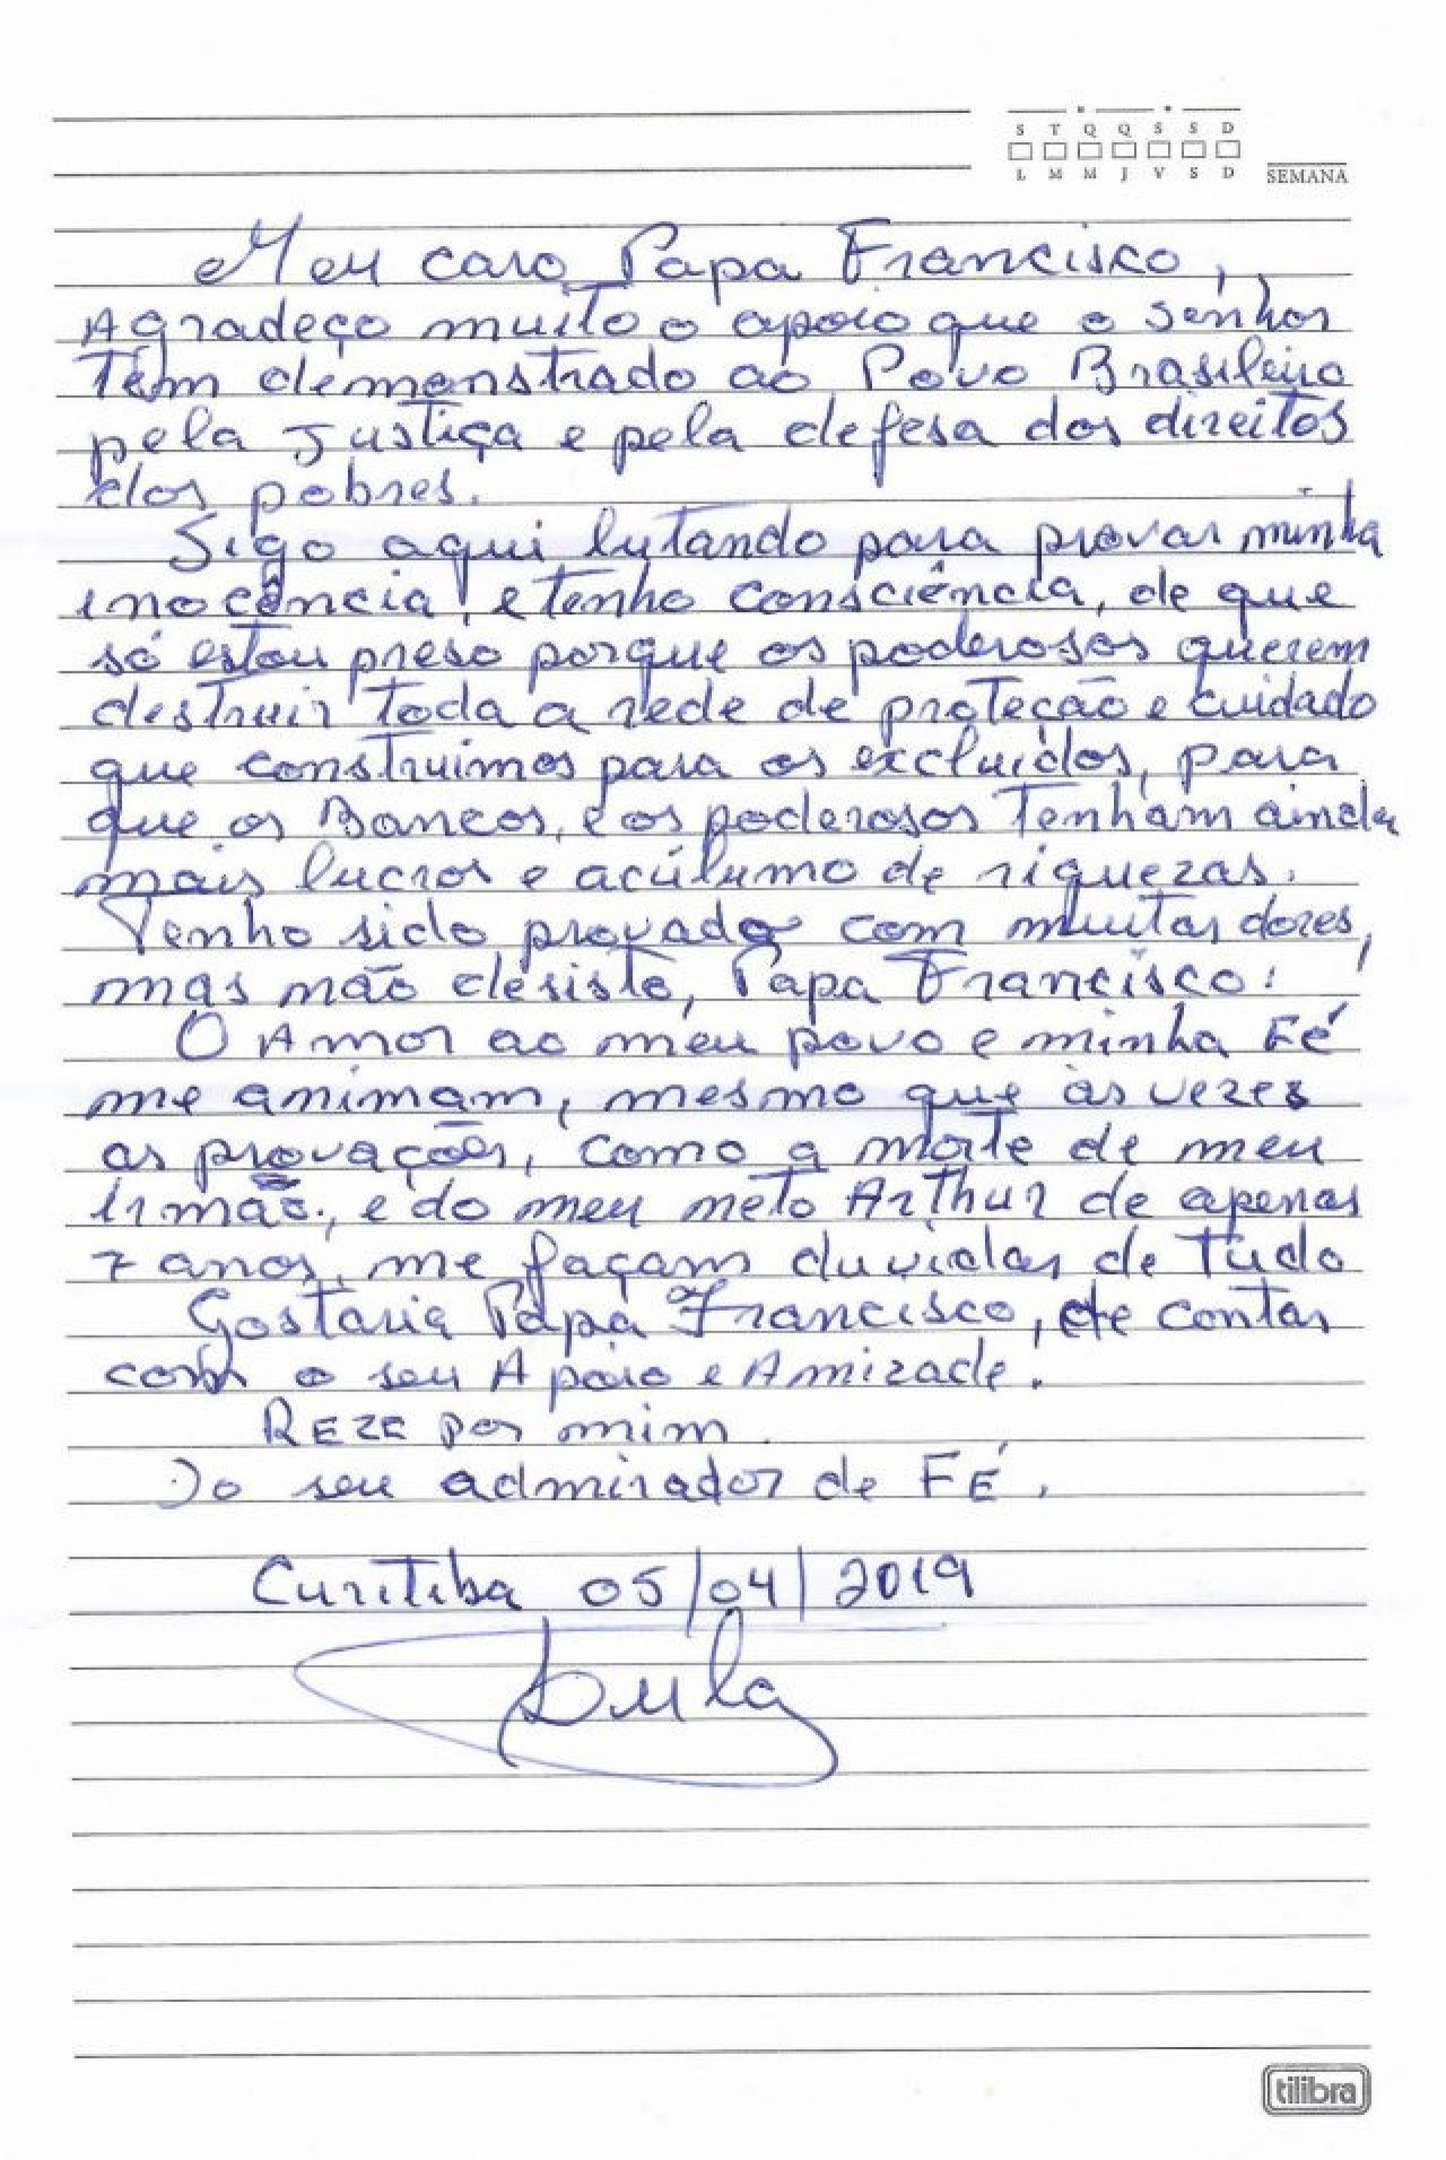 S T Q Q S S D
L M M J V S D SEMANA
Meu caro Papa Francisco,
Agradeço muito o apoio que o senhor
tem demonstrado ao Povo Brasileiro
pela Justiça e pela defesa dos direitos
dos pobres.
Sigo aqui lutando para provar minha
inocência, e tenho consciência, de que
só estou preso porque os poderosos querem
destruir toda a rede de proteção e cuidado
que construimos para os excluidos, para
que os Bancos, e os poderosos tenham ainda
mais lucros e acúlumo de riquezas.
Tenho sido provado com muitas dores,
mas não desisto, Papa Francisco!
O Amor ao meu povo e minha Fé
me animam, mesmo que às vezes
as provações, como a morte de meu
irmão, e do meu neto Arthur de apenas
7 anos, me façam duvidar de tudo
Gostaria Papa Francisco, de contar
com o seu Apoio e Amizade.
REZE por mim.
Do seu admirador de FÉ.
Curitiba 05/04/2019
Lula
tilibra